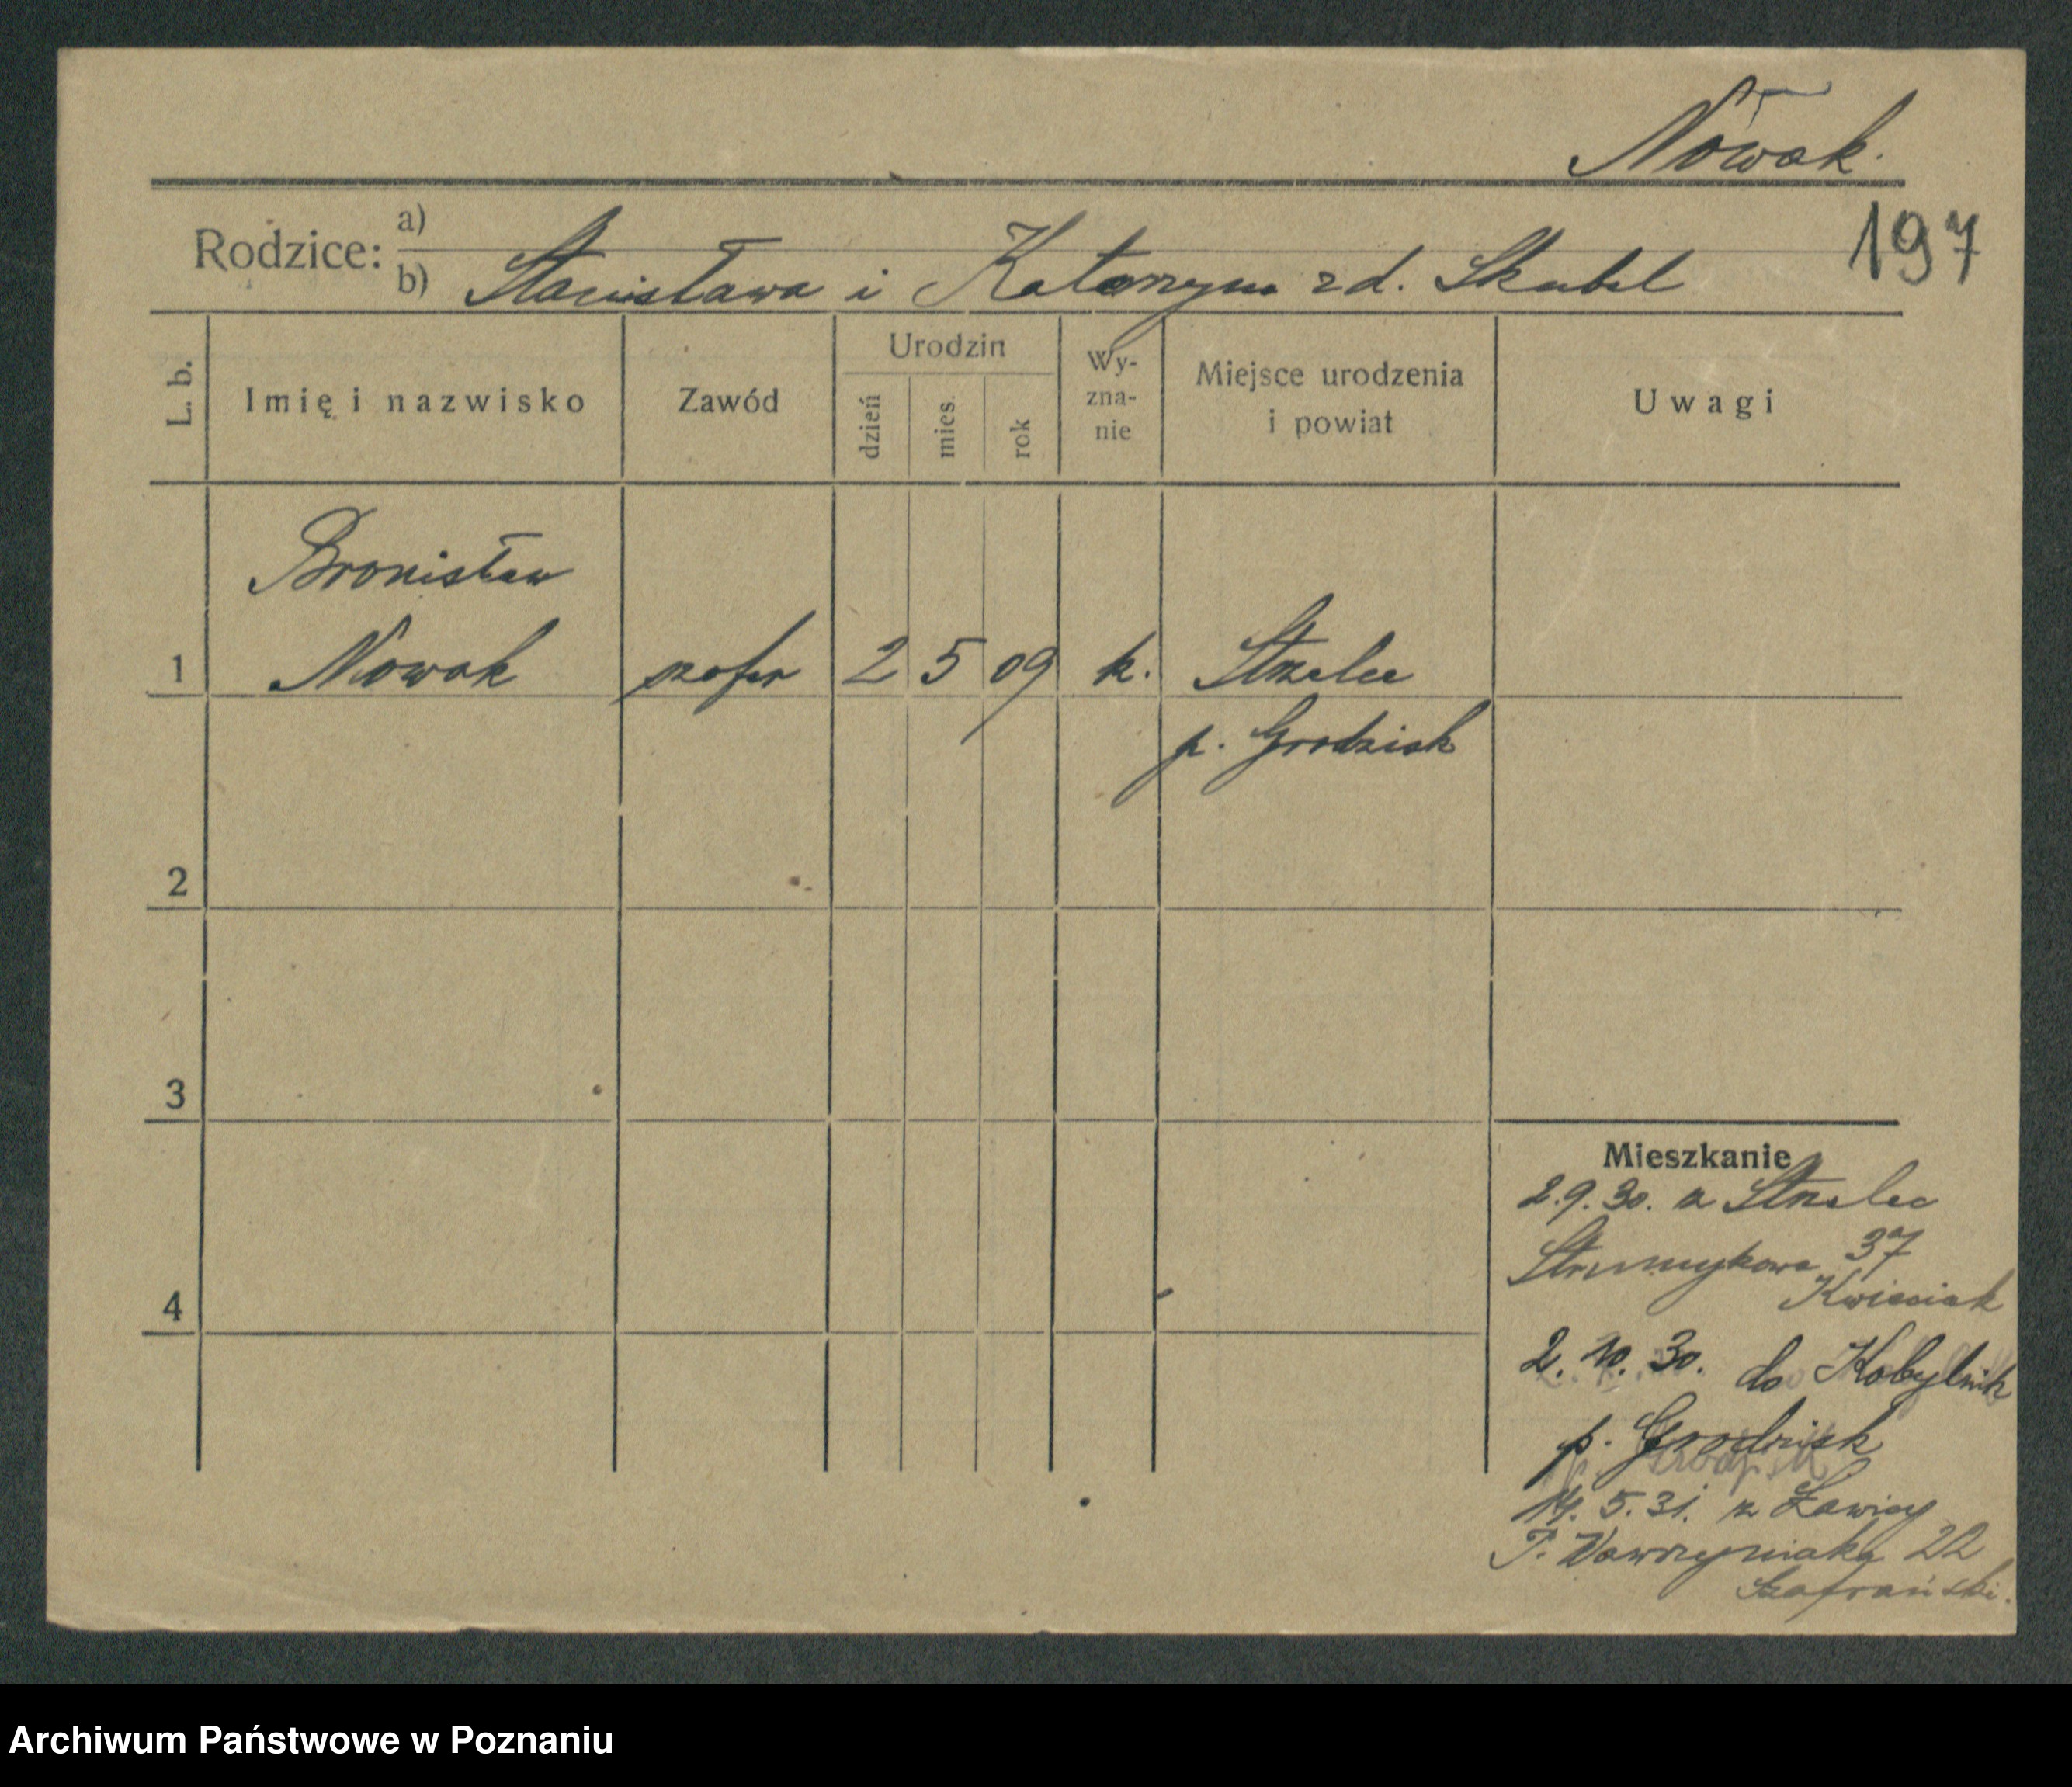 Nowak.
197
Rodzice: a)
b) Stanisława i Katarzyna zd. Skubel
L. b.
Imię i nazwisko
Zawód
Urodzin
dzień
mies.
rok
Wy-
zna-
nie
Miejsce urodzenia
i powiat
Uwagi
Bronisław
1 Nowak szofer 2 5 09 k. Strzelce
p. Grodzisk
2
3
4
Mieszkanie
2.9.30. z Strzelec
Strumykowa 37
Kwieciak
2. 10. 30. do Kobylnik
p. Grodzisk
14. 5. 31. z Ławicy
P. Wawrzyniaka 22
Szafrański.
Archiwum Państwowe w Poznaniu